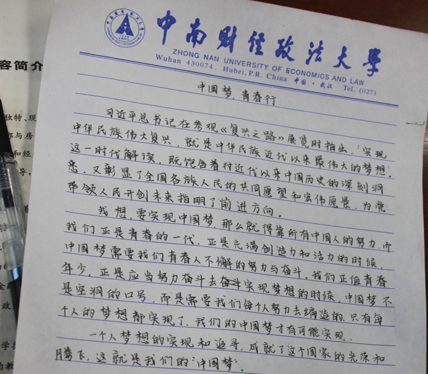 中南财经政法大学
ZHONG NAN UNIVERSITY OF ECONOMICS AND LAW
Wuhan 430074. Hubei, P.R. China 中国·武汉 Tel. (027)
容简介
中国梦,青春行
习近平总书记在参观《复兴之路》展览时指出,“实现
中华民族伟大复兴,就是中华民族近代以来最伟大的梦想。
这一时代解读,既饱含着对近代以来中国历史的深刻洞
悉,又彰显了全国各族人民的共同愿望和宏伟愿景,为党
带领人民开创未来指明了前进方向。
我想,要实现中国梦,那么就得靠所有中国人的努力,而
我们正是青春的一代,正是充满创造力和活力的时候,
中国梦需要我们青春人不懈的努力与奋斗,我们正值青春
年少,正是应当努力奋斗去奋斗实现梦想的时候,中国梦不
是空洞的口号,而是需要我们每个人努力去缔造的,只有每
个人的梦想都实现了,我们的中国梦才有可能实现。
一个人梦想的实现和追寻,成就了这个国家的光荣和
腾飞,这就是我们的“中国梦”。